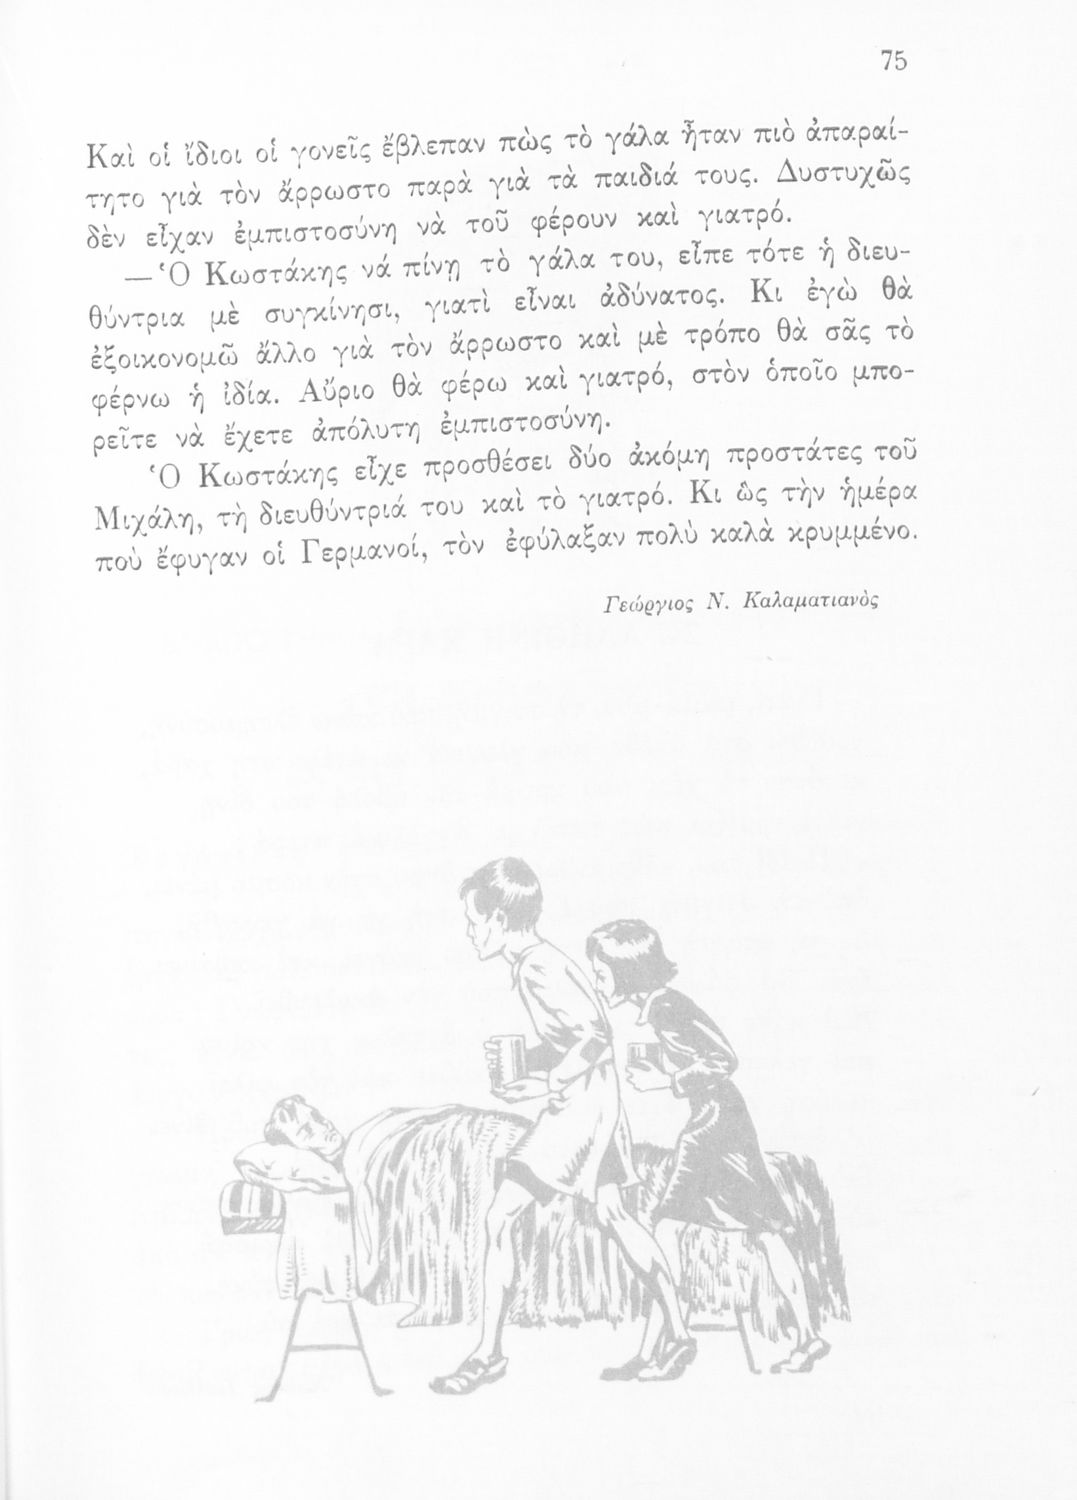 75
Καὶ οἱ ἴδιοι οἱ γονεῖς ἔβλεπαν πὼς τὸ γάλα ἦταν πιὸ ἀπαραί-
τητο γιὰ τὸν ἄρρωστο παρὰ γιὰ τὰ παιδιά τους. Δυστυχῶς
δὲν εἶχαν ἐμπιστοσύνη νὰ τοῦ φέρουν καὶ γιατρό.
— Ὁ Κωστάκης νά πίνῃ τὸ γάλα του, εἶπε τότε ἡ διευ-
θύντρια μὲ συγκίνησι, γιατὶ εἶναι ἀδύνατος. Κι ἐγὼ θὰ
ἐξοικονομῶ ἄλλο γιὰ τὸν ἄρρωστο καὶ μὲ τρόπο θὰ σᾶς τὸ
φέρνω ἡ ἰδία. Αὔριο θὰ φέρω καὶ γιατρό, στὸν ὁποῖο μπο-
ρεῖτε νὰ ἔχετε ἀπόλυτη ἐμπιστοσύνη.
Ὁ Κωστάκης εἶχε προσθέσει δύο ἀκόμη προστάτες τοῦ
Μιχάλη, τὴ διευθύντριά του καὶ τὸ γιατρό. Κι ὣς τὴν ἡμέρα
ποὺ ἔφυγαν οἱ Γερμανοί, τὸν ἐφύλαξαν πολὺ καλὰ κρυμμένο.
Γεώργιος Ν. Καλαματιανὸς